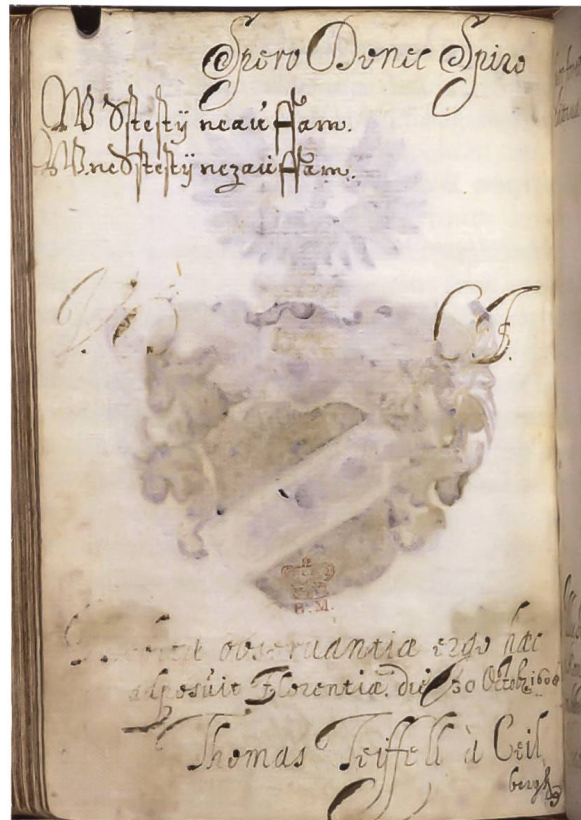 Spero Donec Spiro
W Sstestij neaúffam.
W neSstestij nezaúffam.
F.
B. M.
observantiæ ergo hæc
adposúit Florentiæ. die 30 Octob:
Thomas Teiffell à Ceil
bergk